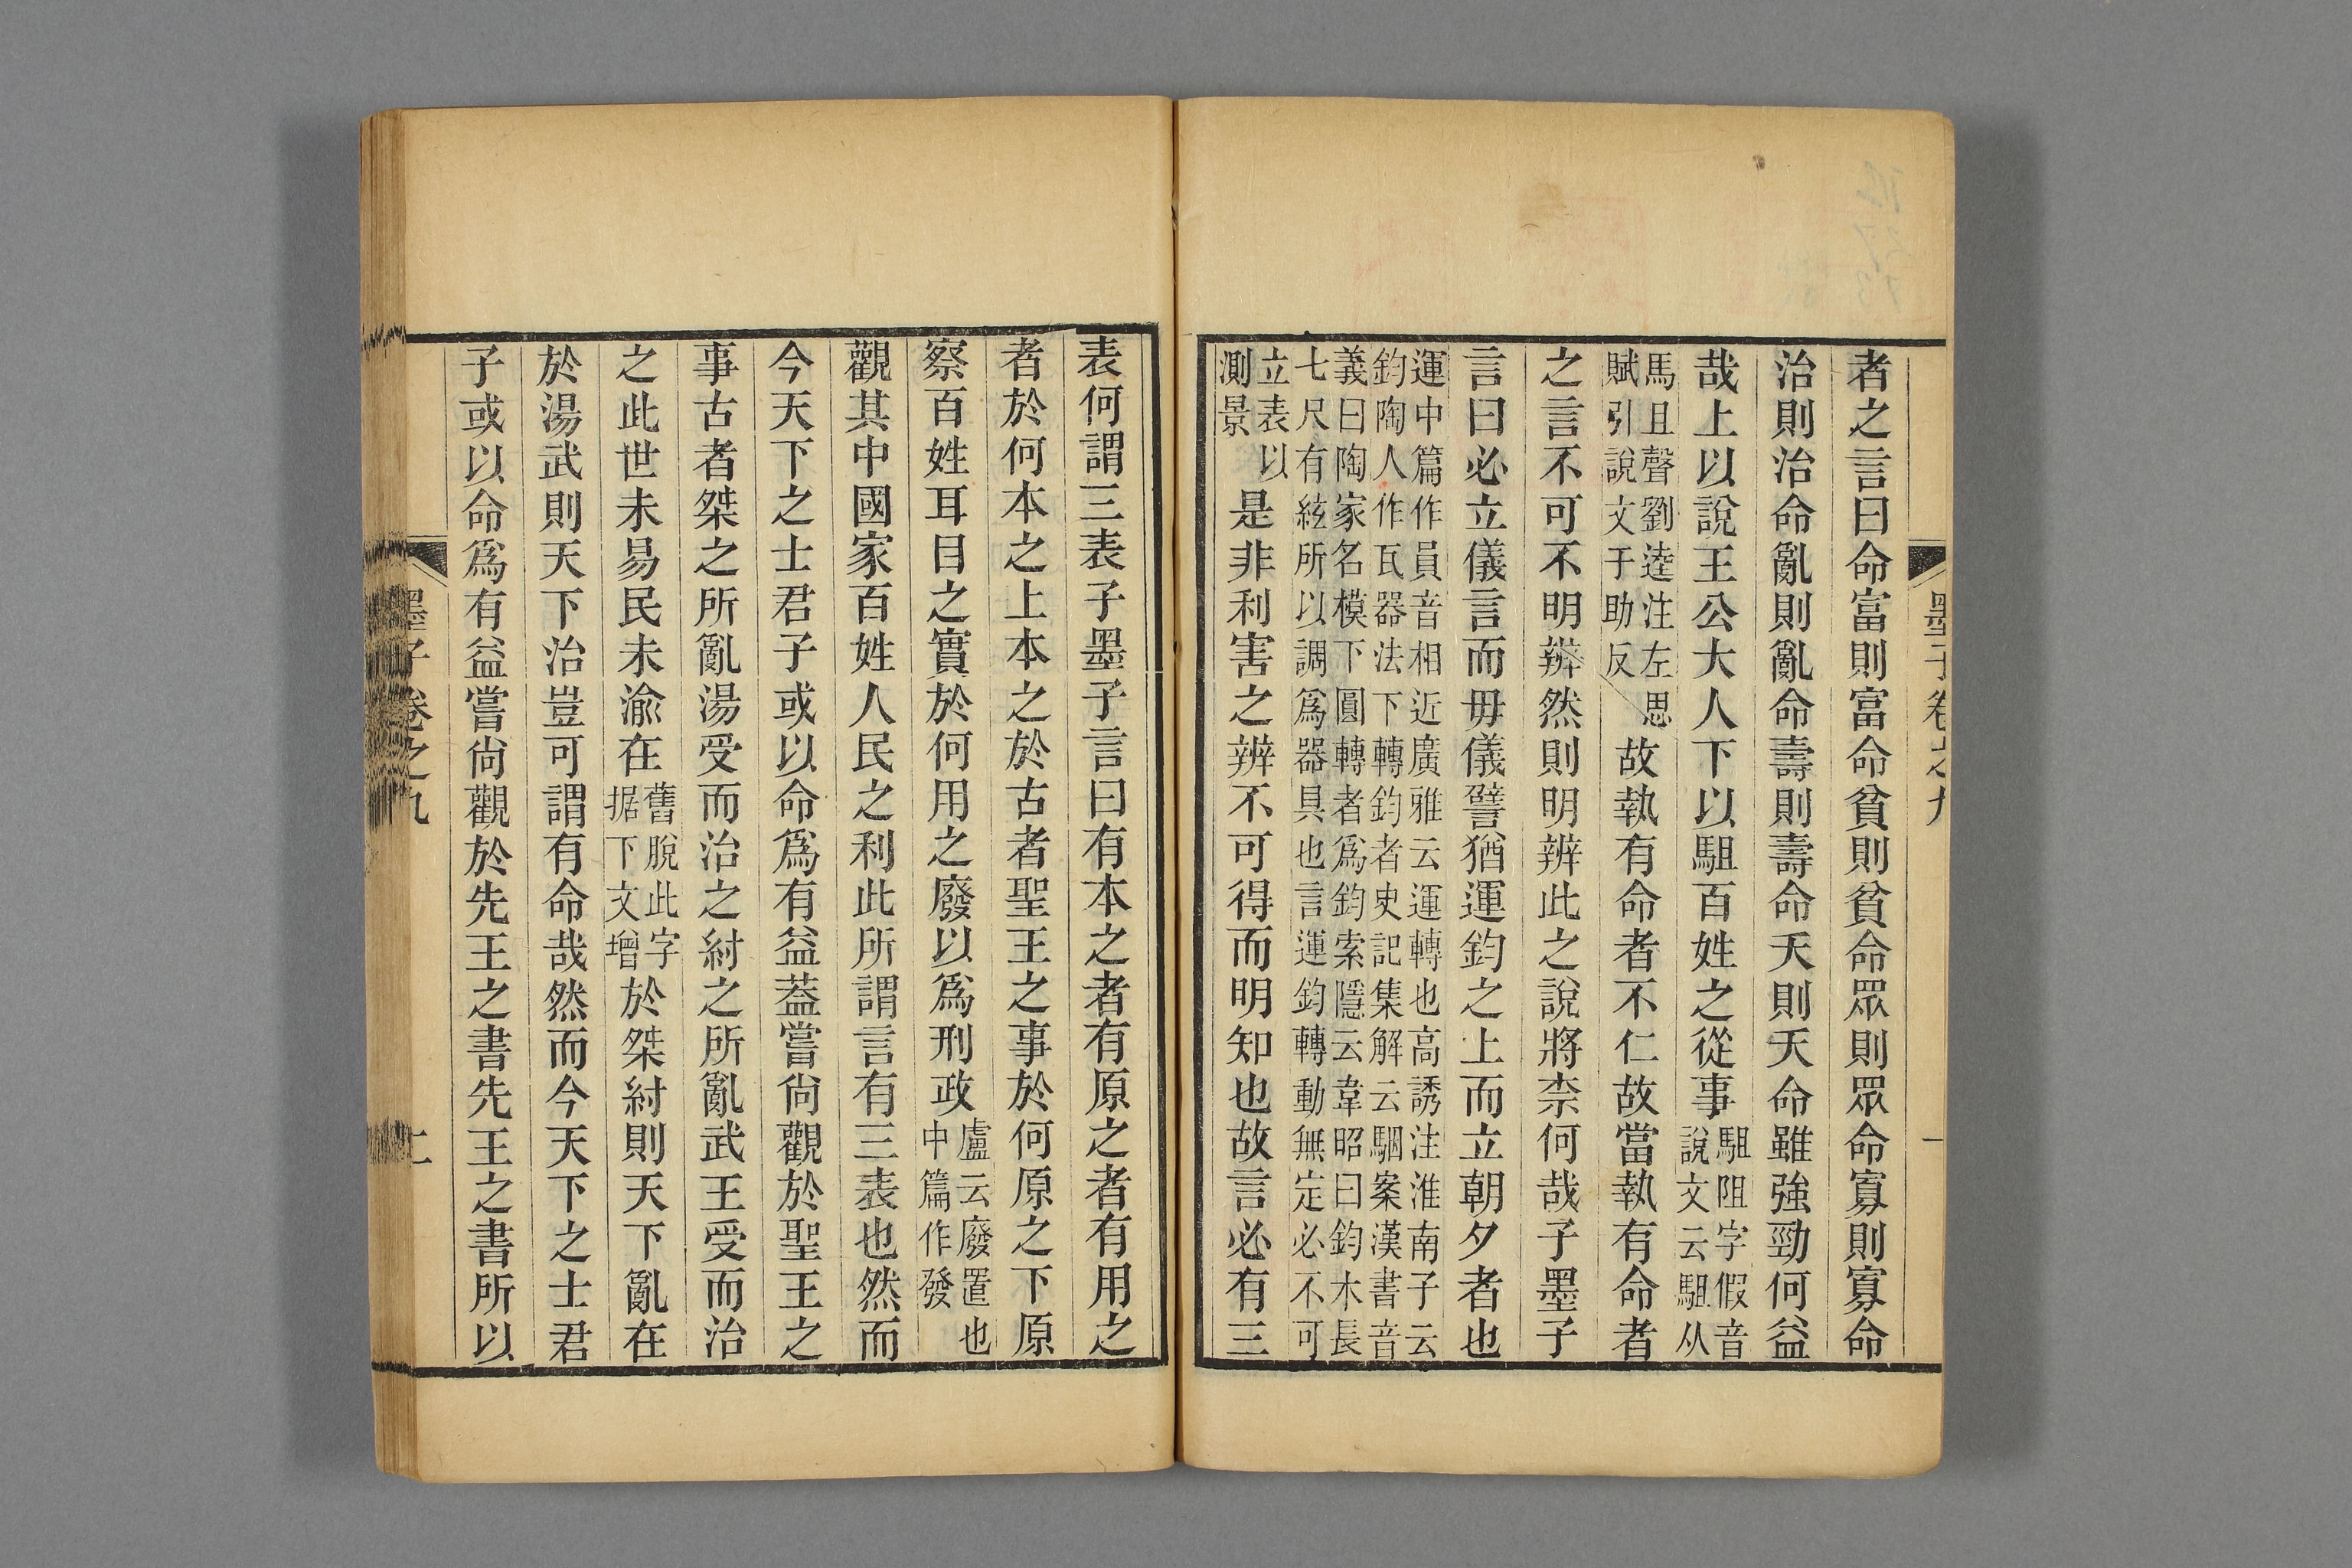 墨子卷之九
者之言曰命富則富命貧則貧命眾則眾命寡則寡命
治則治命亂則亂命壽則壽命夭則夭命雖強勁何益
哉上以說王公大人下以駔百姓之從事駔阻字假音說文云駔从
馬且聲劉逵注左思賦引說文于助反故執有命者不仁故當執有命者
之言不可不明辨然則明辨此之說將柰何哉子墨子
言曰必立儀言而毋儀譬猶運鈞之上而立朝夕者也
運中篇作員音相近廣雅云運轉也高誘注淮南子云
鈞陶人作瓦器法下轉鈞者史記集解云駰案漢書音
義曰陶家名模下圓轉者爲鈞索隱云韋昭曰鈞木長
七尺有絃所以調爲器具也言運鈞轉動無定必不可
立表以測景是非利害之辨不可得而明知也故言必有三
表何謂三表子墨子言曰有本之者有原之者有用之
者於何本之上本之於古者聖王之事於何原之下原
察百姓耳目之實於何用之廢以爲刑政盧云廢置也中篇作發
觀其中國家百姓人民之利此所謂言有三表也然而
今天下之士君子或以命爲有益葢嘗尙觀於聖王之
事古者桀之所亂湯受而治之紂之所亂武王受而治
之此世未易民未渝在舊脫此字据下文增於桀紂則天下亂在
於湯武則天下治豈可謂有命哉然而今天下之士君
子或以命爲有益嘗尙觀於先王之書先王之書所以
墨子卷之九